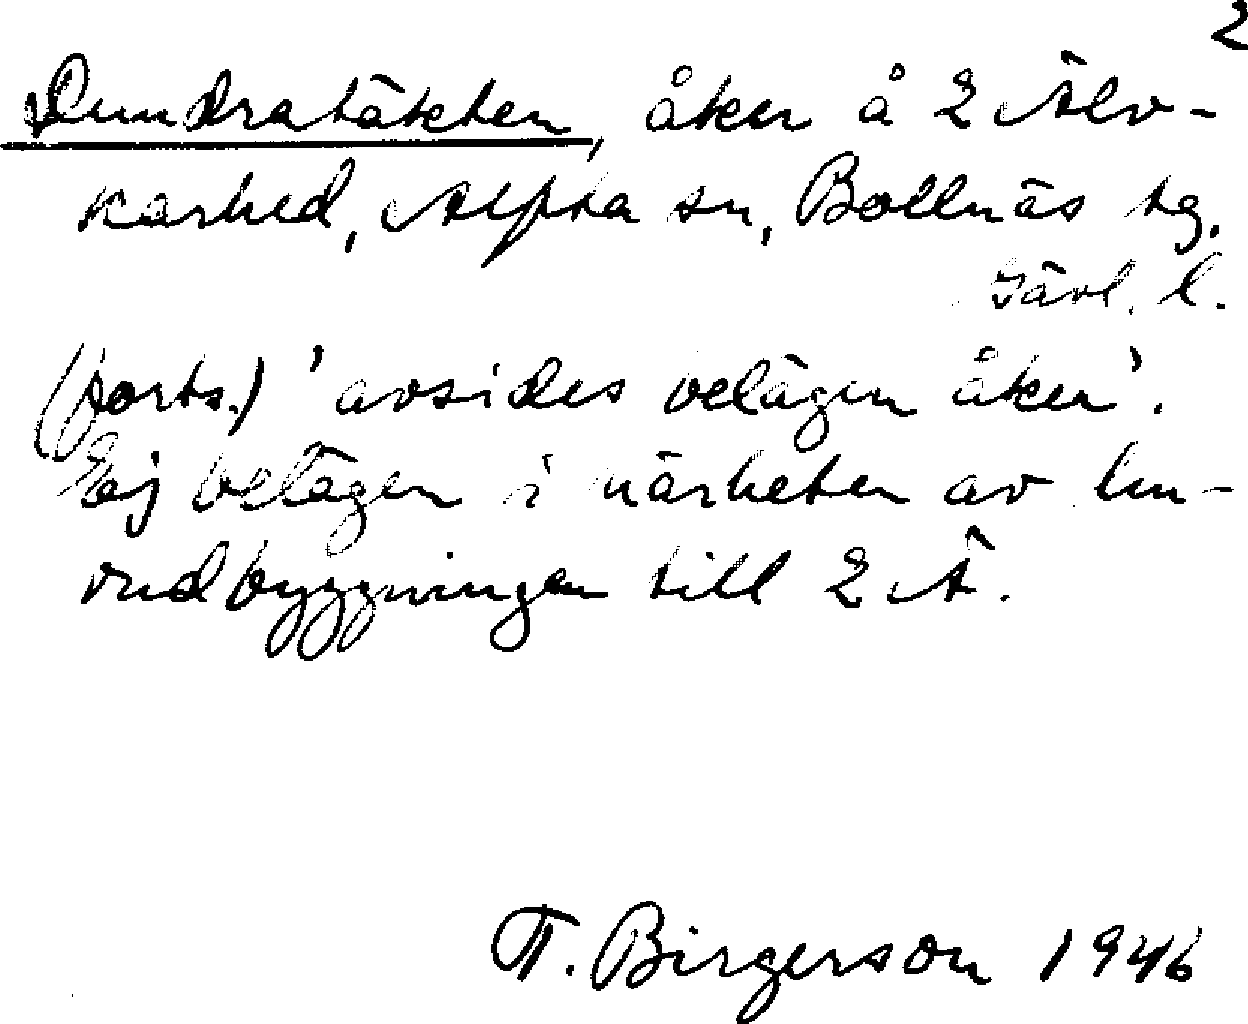 2
Dundratäkten, åker å 2 Älv-
karhed, Alfta sn, Bollnäs tg.
Gävl. l.
(forts.) 'avsides belägen åker'.
Ej belägen i närheten av hu-
vudbyggningen till 2 Ä.
T. Birgerson 1946